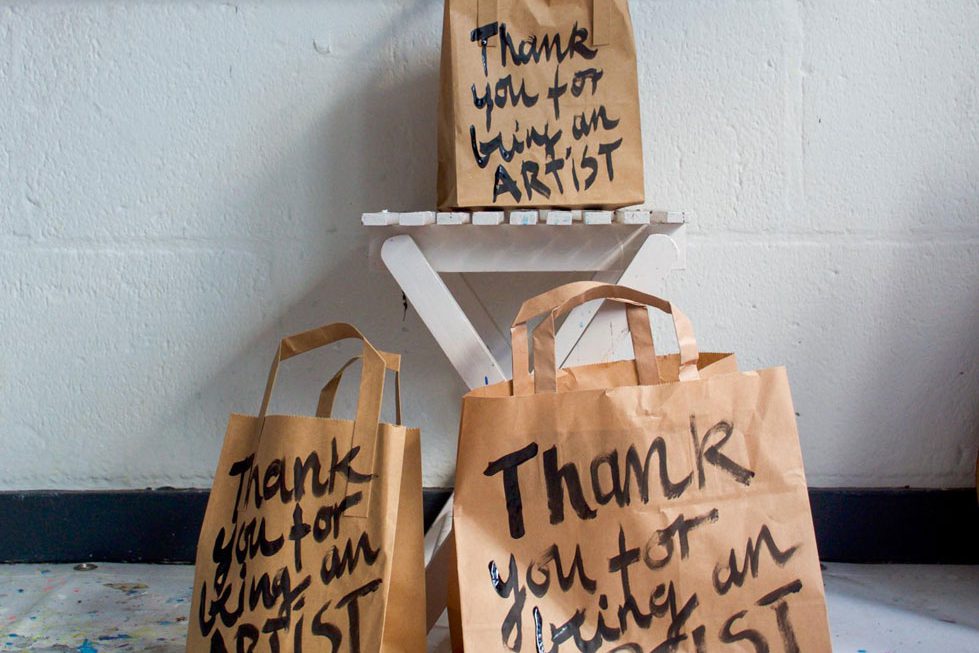 Thank
you for
being an
ARTIST
Thank
you for
being an
ARTIST
Thank
you for
being an
ARTIST